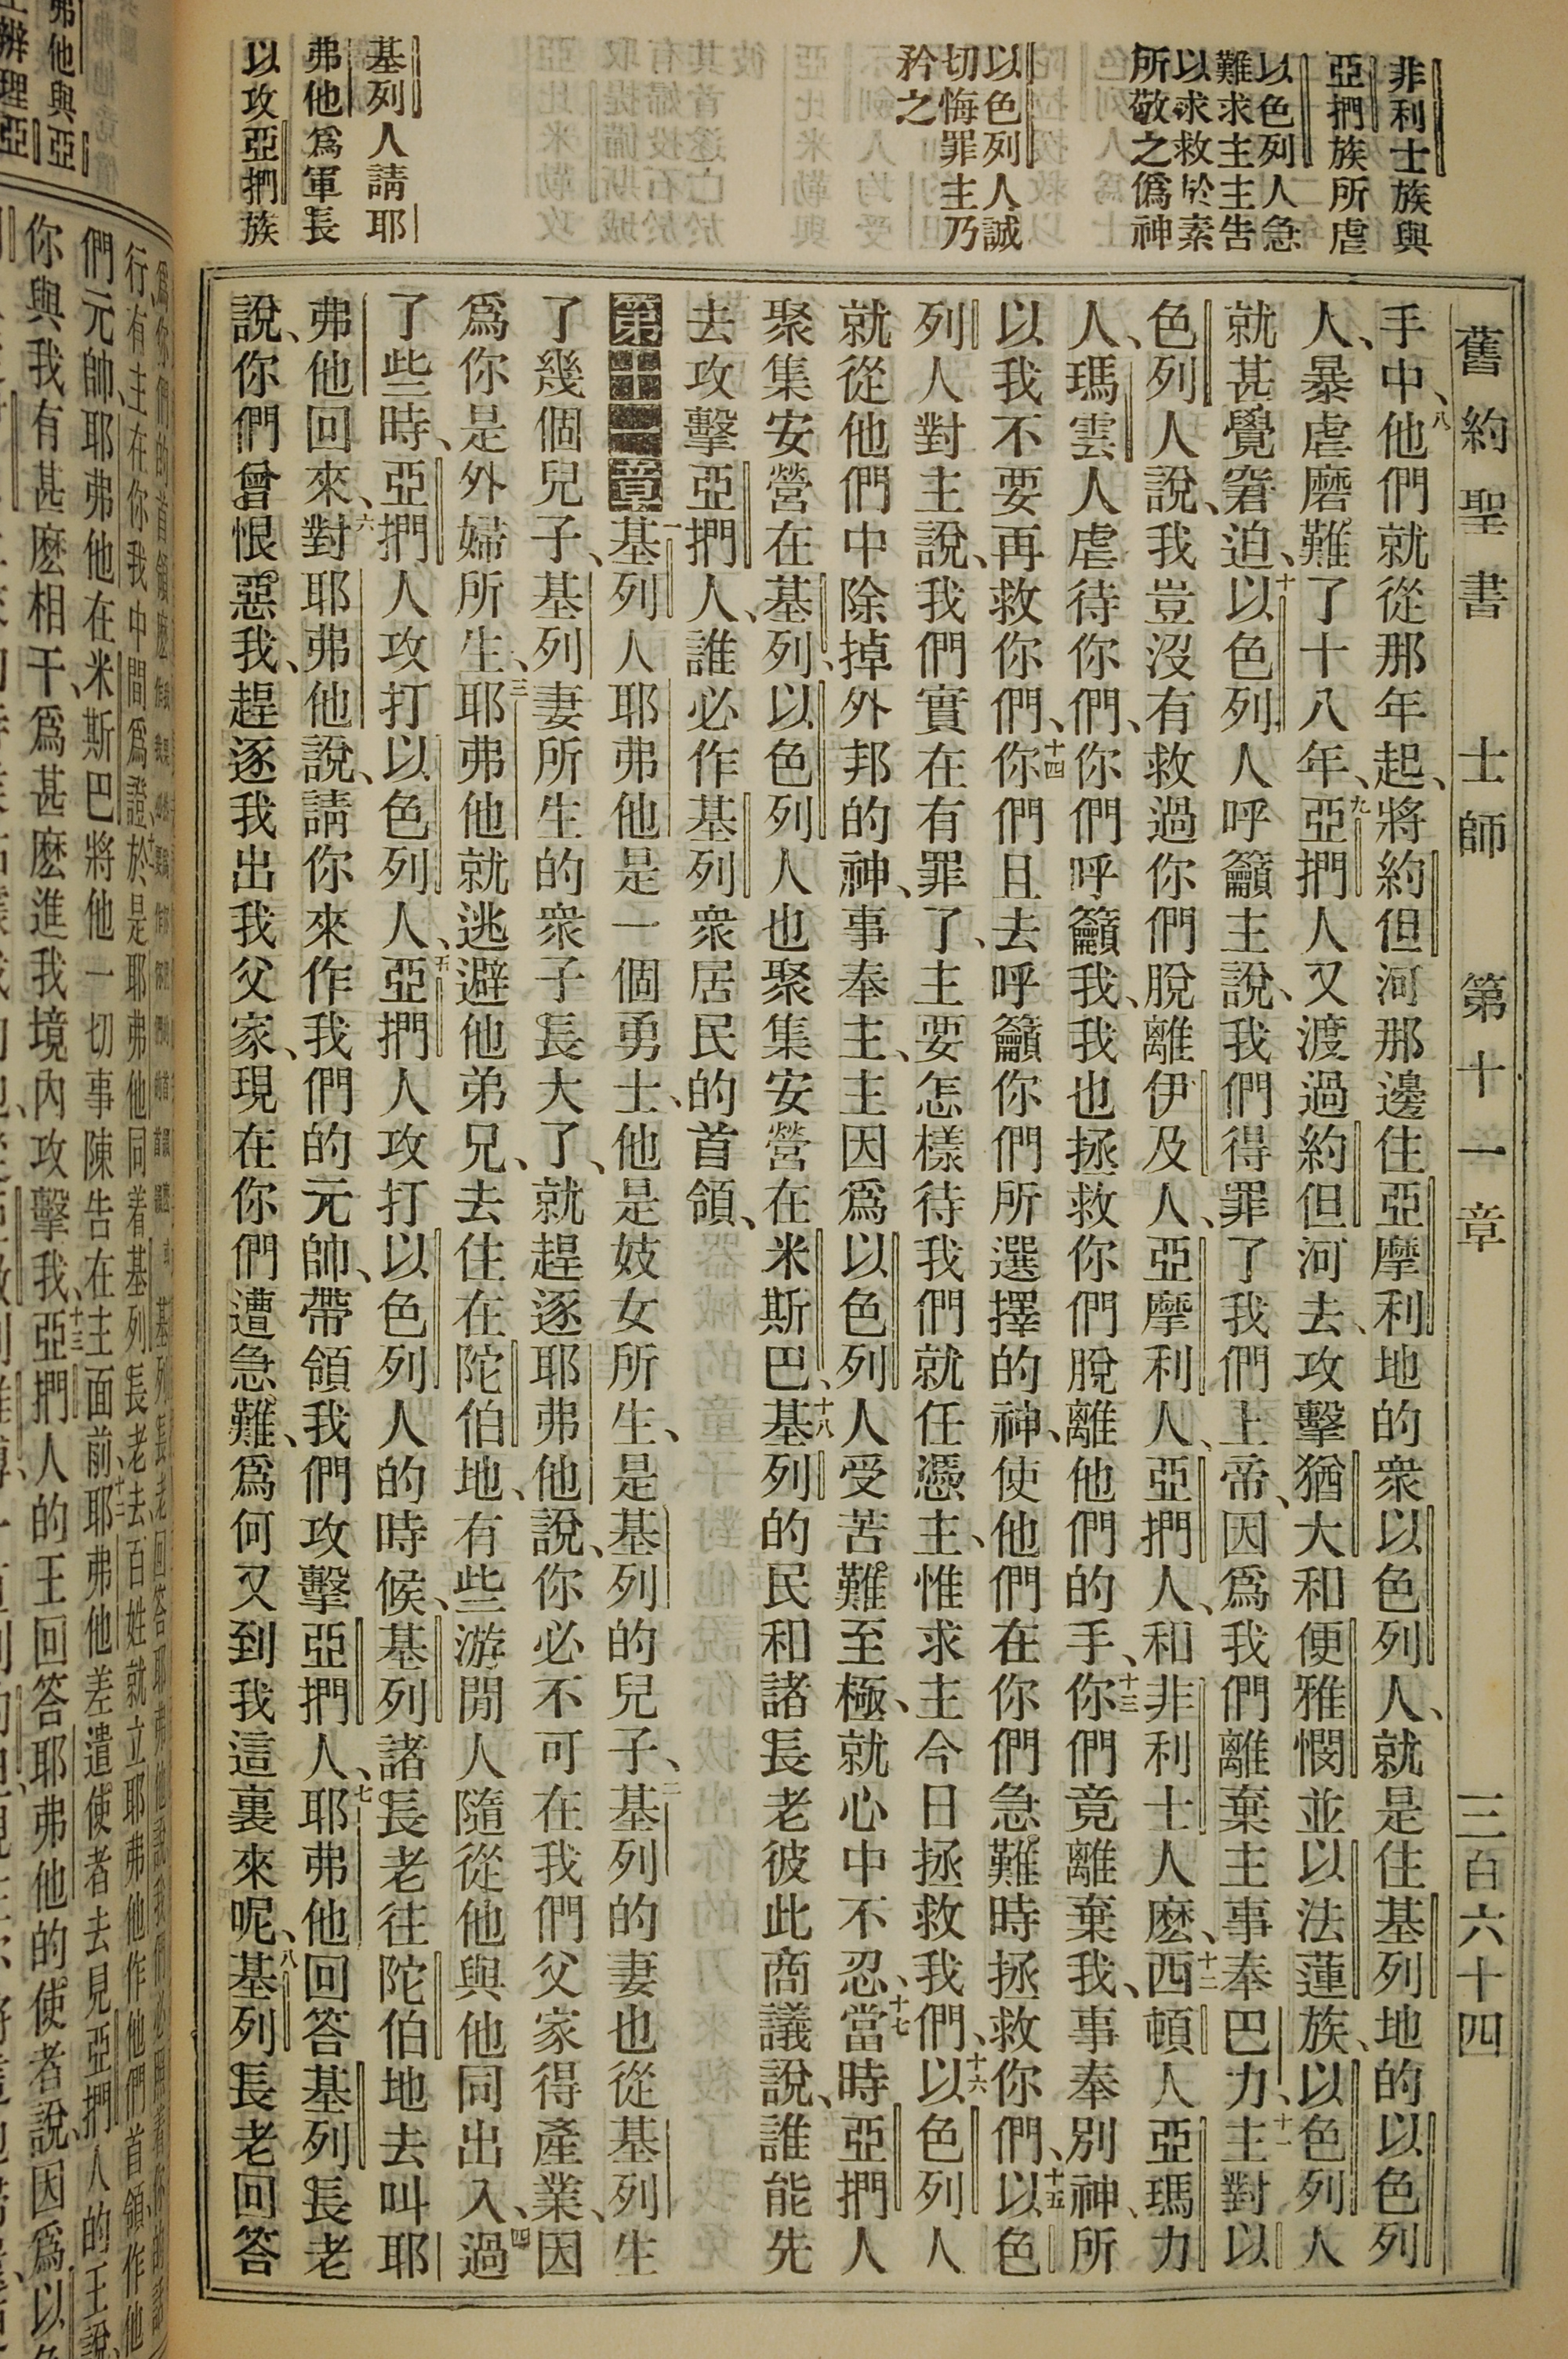 舊約聖書 士師 第十一章 三百六十四
非利士族與
亞捫族所虐
以色列人急
難求主主告
以求救於素
所敬之僞神
以色列人誠
切悔罪主乃
矜之
基列人請耶
弗他爲軍長
以攻亞捫族
手中、八他們就從那年起、將約但河那邊住亞摩利地的衆以色列人、就是住基列地的以色列
人、暴虐磨難了十八年、九亞捫人又渡過約但河去、攻擊猶大和便雅憫並以法蓮族、以色列人
就甚覺窘迫、十以色列人呼籲主說、我們得罪了我們上帝、因爲我們離棄主事奉巴力、十一主對以
色列人說、我豈沒有救過你們脫離伊及人、亞摩利人、亞捫人、和非利士人麽、十二西頓人亞瑪力
人、瑪雲人虐待你們、你們呼籲我、我也拯救你們脫離他們的手、十三你們竟離棄我、事奉別神、所
以我不要再救你們、十四你們且去呼籲你們所選擇的神、使他們在你們急難時拯救你們、十五以色
列人對主說、我們實在有罪了、主要怎樣待我們就任憑主、惟求主今日拯救我們、十六以色列人
就從他們中除掉外邦的神、事奉主、主因爲以色列人受苦難至極、就心中不忍、十七當時亞捫人
聚集安營在基列、以色列人也聚集安營在米斯巴、十八基列的民和諸長老彼此商議說、誰能先
去攻擊亞捫人、誰必作基列衆居民的首領、
第十一章 一基列人耶弗他是一個勇士、他是妓女所生、是基列的兒子、二基列的妻也從基列生
了幾個兒子、基列妻所生的衆子長大了、就趕逐耶弗他說、你必不可在我們父家得產業、因
爲你是外婦所生、三耶弗他就逃避他弟兄、去住在陀伯地、有些游閒人隨從他與他同出入、四過
了些時、亞捫人攻打以色列人、五亞捫人攻打以色列人的時候、基列諸長老往陀伯地去叫耶
弗他回來、六對耶弗他說、請你來作我們的元帥、帶領我們攻擊亞捫人、七耶弗他回答基列長老
說、你們曾恨惡我、趕逐我出我父家、現在你們遭急難、爲何又到我這裏來呢、八基列長老回答
行、有主在你我中間爲證、於是耶弗他同着基列長老去、百姓就立耶弗他作他們首領作他
們元帥、耶弗他在米斯巴將他一切事陳告在主面前、十二耶弗他差遣使者去見亞捫人的王說、
你與我有甚麽相干、爲甚麽進我境內攻擊我、十三亞捫人的王回答耶弗他的使者說、因爲以